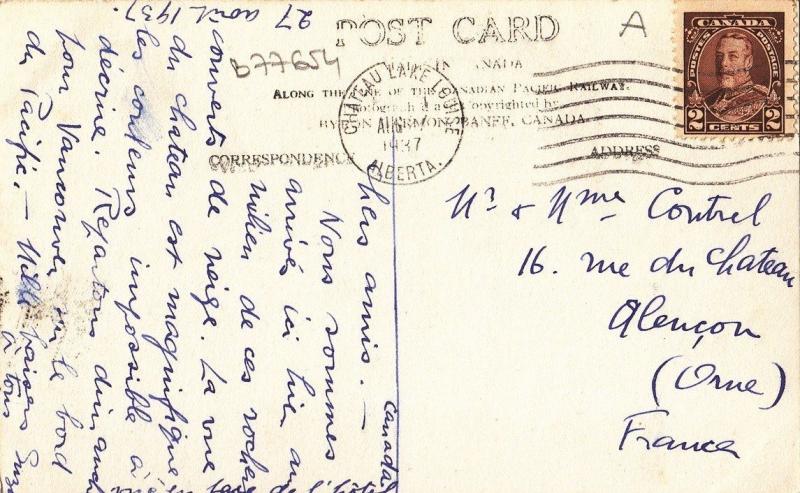 POST CARD
A
CANADA
POSTES POSTAGE
2 2
CENTS
b77654
CANADA
ALONG THE LINE OF THE CANADIAN PACIFIC RAILWAY.
Photograph and Copyrighted by
BYRON HARMON, BANFF, CANADA
CORRESPONDENCE
ADDRESS
CHATEAU LAKE LOUISE
AUG
1937
ALBERTA.
27 août 1937.
Chers amis. —
Nous sommes
arrivés ici hier au
milien de ces rochers
couverts de neige. La vue
du chateau est magnifique
les couleurs impossible à
décrire. Repartons dimanche
pour Vancouver sur le bord
du Pacific. — Mille baisers
à tous
Canada
de l'hôtel
Mr & Mme Contrel
16. rue du Chateau
Alençon
(Orne)
France